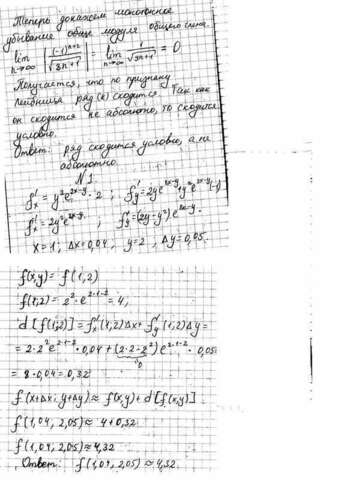 Теперь докажем монотонное
убывание общ. модуля общего члена.
lim n→∞ |(-1)^{n+2} / √(3n+1)| = lim n→∞ 1/√(3n+1) = 0
Получается, что по признаку
Лейбница ряд (*) сходится. Так как
он сходится не абсолютно, то сходится
условно.
Ответ: ряд сходится условно, а не
абсолютно.
N1
f'x = y²e^{2x-y} · 2 ; f'y = 2ye^{2x-y} + y²e^{2x-y}(-1)
f'x = 2y²e^{2x-y} ; f'y = (2y-y²)e^{2x-y}
x=1; Δx=0,04, y=2, Δy=0,05.
f(x,y) = f(1,2)
f(1,2) = 2²·e^{2·1-2} = 4;
d[f(1,2)] = f'x(1,2)Δx + f'y(1,2)Δy =
= 2·2²e^{2·1-2} · 0,04 + (2·2-2²)e^{2·1-2} · 0,05
0
= 8·0,04 = 0,32
f(x+Δx; y+Δy) ≈ f(x,y) + d[f(x,y)]
f(1,04, 2,05) ≈ 4+0,32
f(1,04, 2,05) ≈ 4,32
Ответ: f(1,04, 2,05) ≈ 4,32.